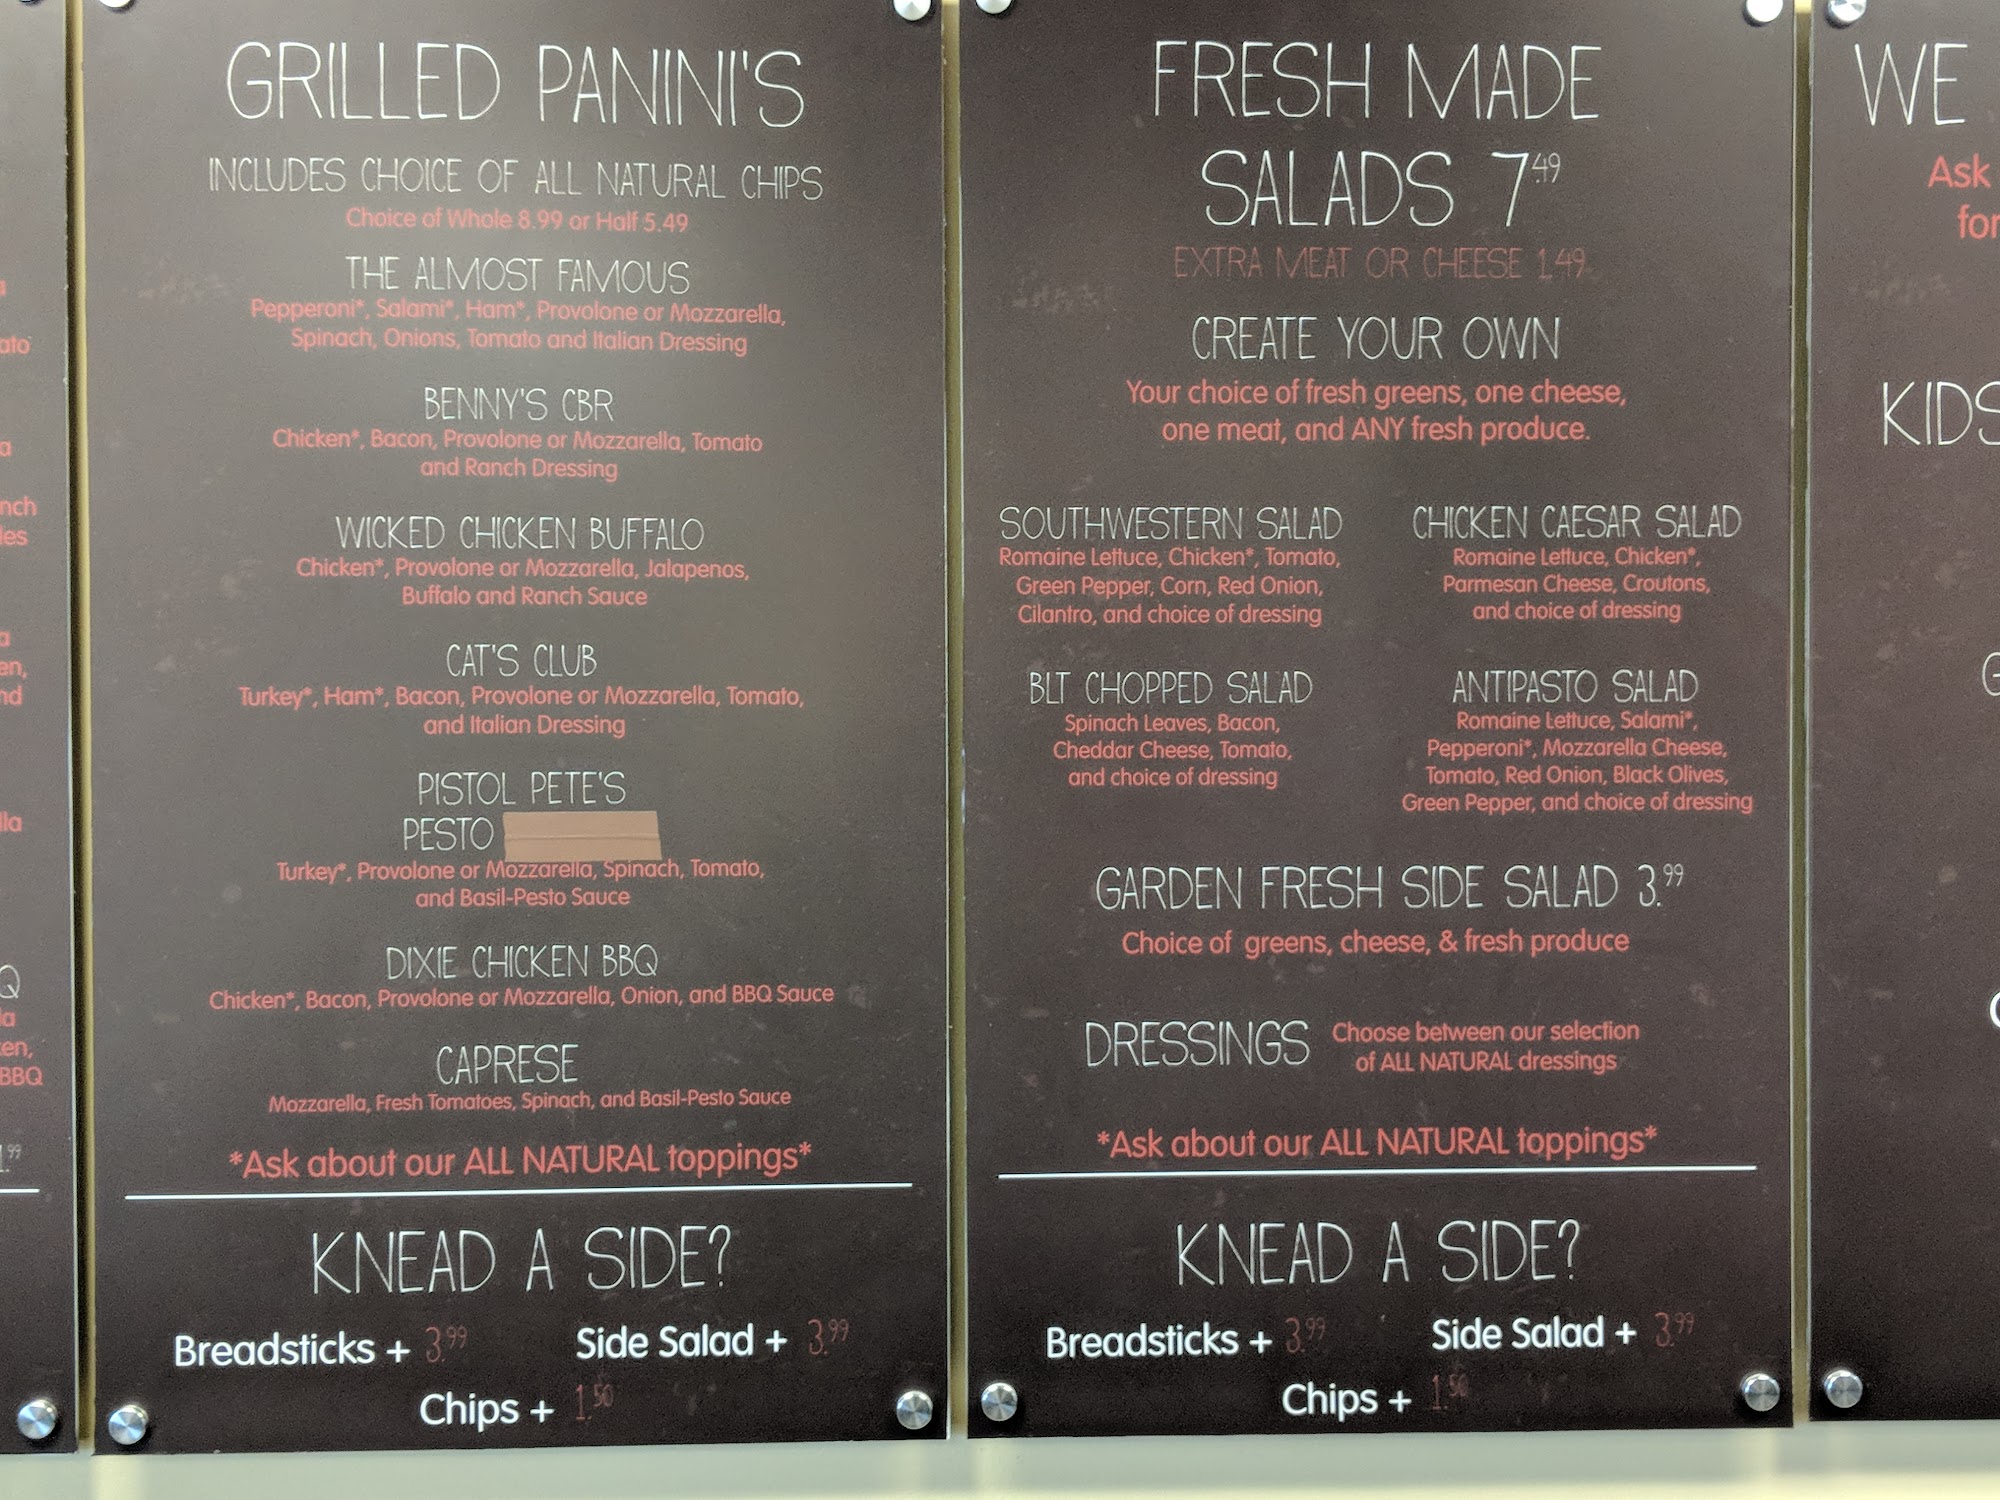 GRILLED PANINI'S
INCLUDES CHOICE OF ALL NATURAL CHIPS
Choice of Whole 8.99 or Half 5.49
THE ALMOST FAMOUS
Pepperoni*, Salami*, Ham*, Provolone or Mozzarella,
Spinach, Onions, Tomato and Italian Dressing
BENNY'S CBR
Chicken*, Bacon, Provolone or Mozzarella, Tomato
and Ranch Dressing
WICKED CHICKEN BUFFALO
Chicken*, Provolone or Mozzarella, Jalapenos,
Buffalo and Ranch Sauce
CAT'S CLUB
Turkey*, Ham*, Bacon, Provolone or Mozzarella, Tomato,
and Italian Dressing
PISTOL PETE'S
PESTO
Turkey*, Provolone or Mozzarella, Spinach, Tomato,
and Basil-Pesto Sauce
DIXIE CHICKEN BBQ
Chicken*, Bacon, Provolone or Mozzarella, Onion, and BBQ Sauce
CAPRESE
Mozzarella, Fresh Tomatoes, Spinach, and Basil-Pesto Sauce
*Ask about our ALL NATURAL toppings*
KNEAD A SIDE?
Breadsticks + 3.99 Side Salad + 3.99
Chips + 1.50
FRESH MADE
SALADS 7.49
EXTRA MEAT OR CHEESE 1.49
CREATE YOUR OWN
Your choice of fresh greens, one cheese,
one meat, and ANY fresh produce.
SOUTHWESTERN SALAD
Romaine Lettuce, Chicken*, Tomato,
Green Pepper, Corn, Red Onion,
Cilantro, and choice of dressing
CHICKEN CAESAR SALAD
Romaine Lettuce, Chicken*,
Parmesan Cheese, Croutons,
and choice of dressing
BLT CHOPPED SALAD
Spinach Leaves, Bacon,
Cheddar Cheese, Tomato,
and choice of dressing
ANTIPASTO SALAD
Romaine Lettuce, Salami*,
Pepperoni*, Mozzarella Cheese,
Tomato, Red Onion, Black Olives,
Green Pepper, and choice of dressing
GARDEN FRESH SIDE SALAD 3.99
Choice of greens, cheese, & fresh produce
DRESSINGS
Choose between our selection
of ALL NATURAL dressings
*Ask about our ALL NATURAL toppings*
KNEAD A SIDE?
Breadsticks + 3.99 Side Salad + 3.99
Chips + 1.50
WE
Ask
for
KIDS